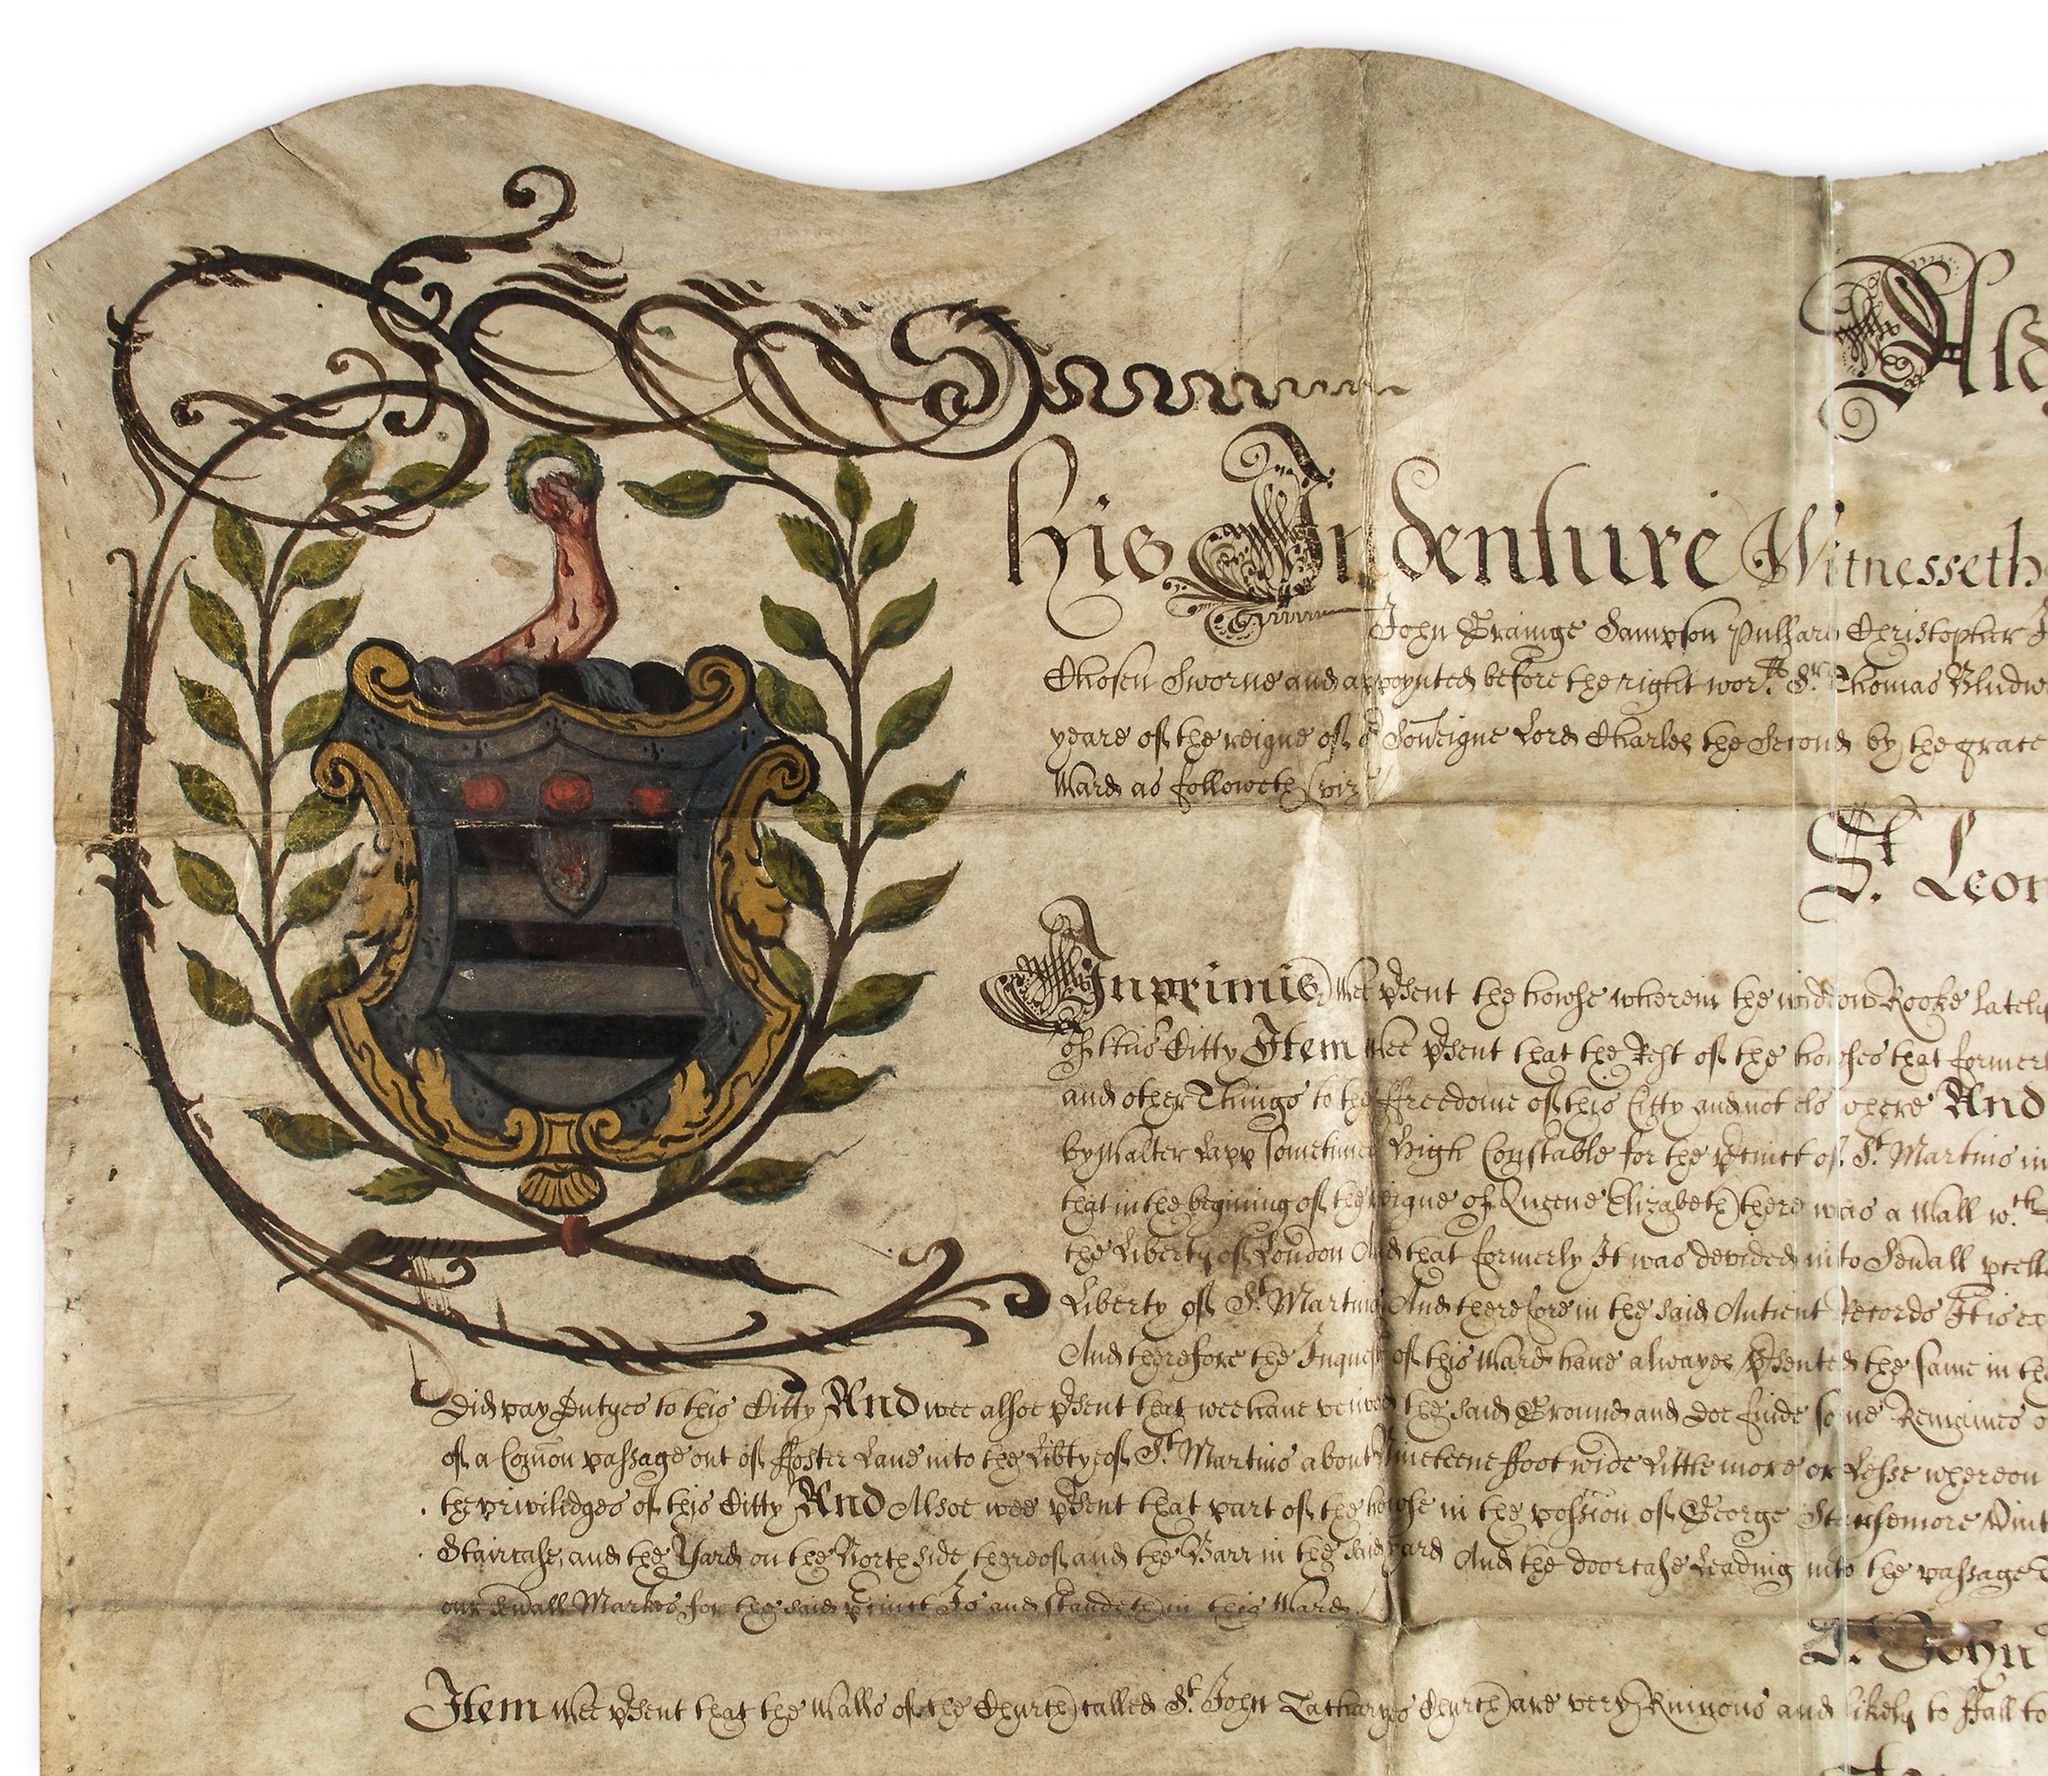 Ald
This Indenture Witnesseth
John Grainge Sampson Pulhard Christopher
Chosen Sworne and appoynted before the right wor.ll Sr. Thomas Bludw
yeare of the reigne of or Soūeigne Lord Charles the Second by the grace
Ward as followeth (viz
St. Leon
Inprimis wee psent the howse wherein the widdow Rooke lately
of this Citty Item wee psent that the Rest of the howses that former
and other Things to the ffreedome of this Citty and not els where And
by Walter Lapp sometimes High Constable for the pcinct of St. Martins in
that in the begining of the reigne of Queene Elizabeth there was a Wall wth
the Liberty of London And that formerly It was devided into Seūall pcells
Liberty of St. Martins And therefore in the said Antient Records It is ex
And therefore the Inquest of this Ward have alwayes psented the same in the
Did pay Dutyes to this Citty And wee alsoe psent that wee have veiwed the said Ground and doe finde some Remaines o
of a Com̄on passage out of ffoster Lane into the Libty of St. Martins about Nineteene ffoot wide Little more or Lesse whereon
the priviledges of this Citty And Alsoe wee psent that part of the howse in the possion of George Vint
Staircase, and the Yard on the North side thereof and the Barr in the said yard And the doorcase Leading into the passage
our Seūall Markes for the said pcinct Is and standeth in this Ward.
St. John
Item wee psent that the Walls of the Church called St. John Zacharyes Church are very Ruinous and likely to ffall to